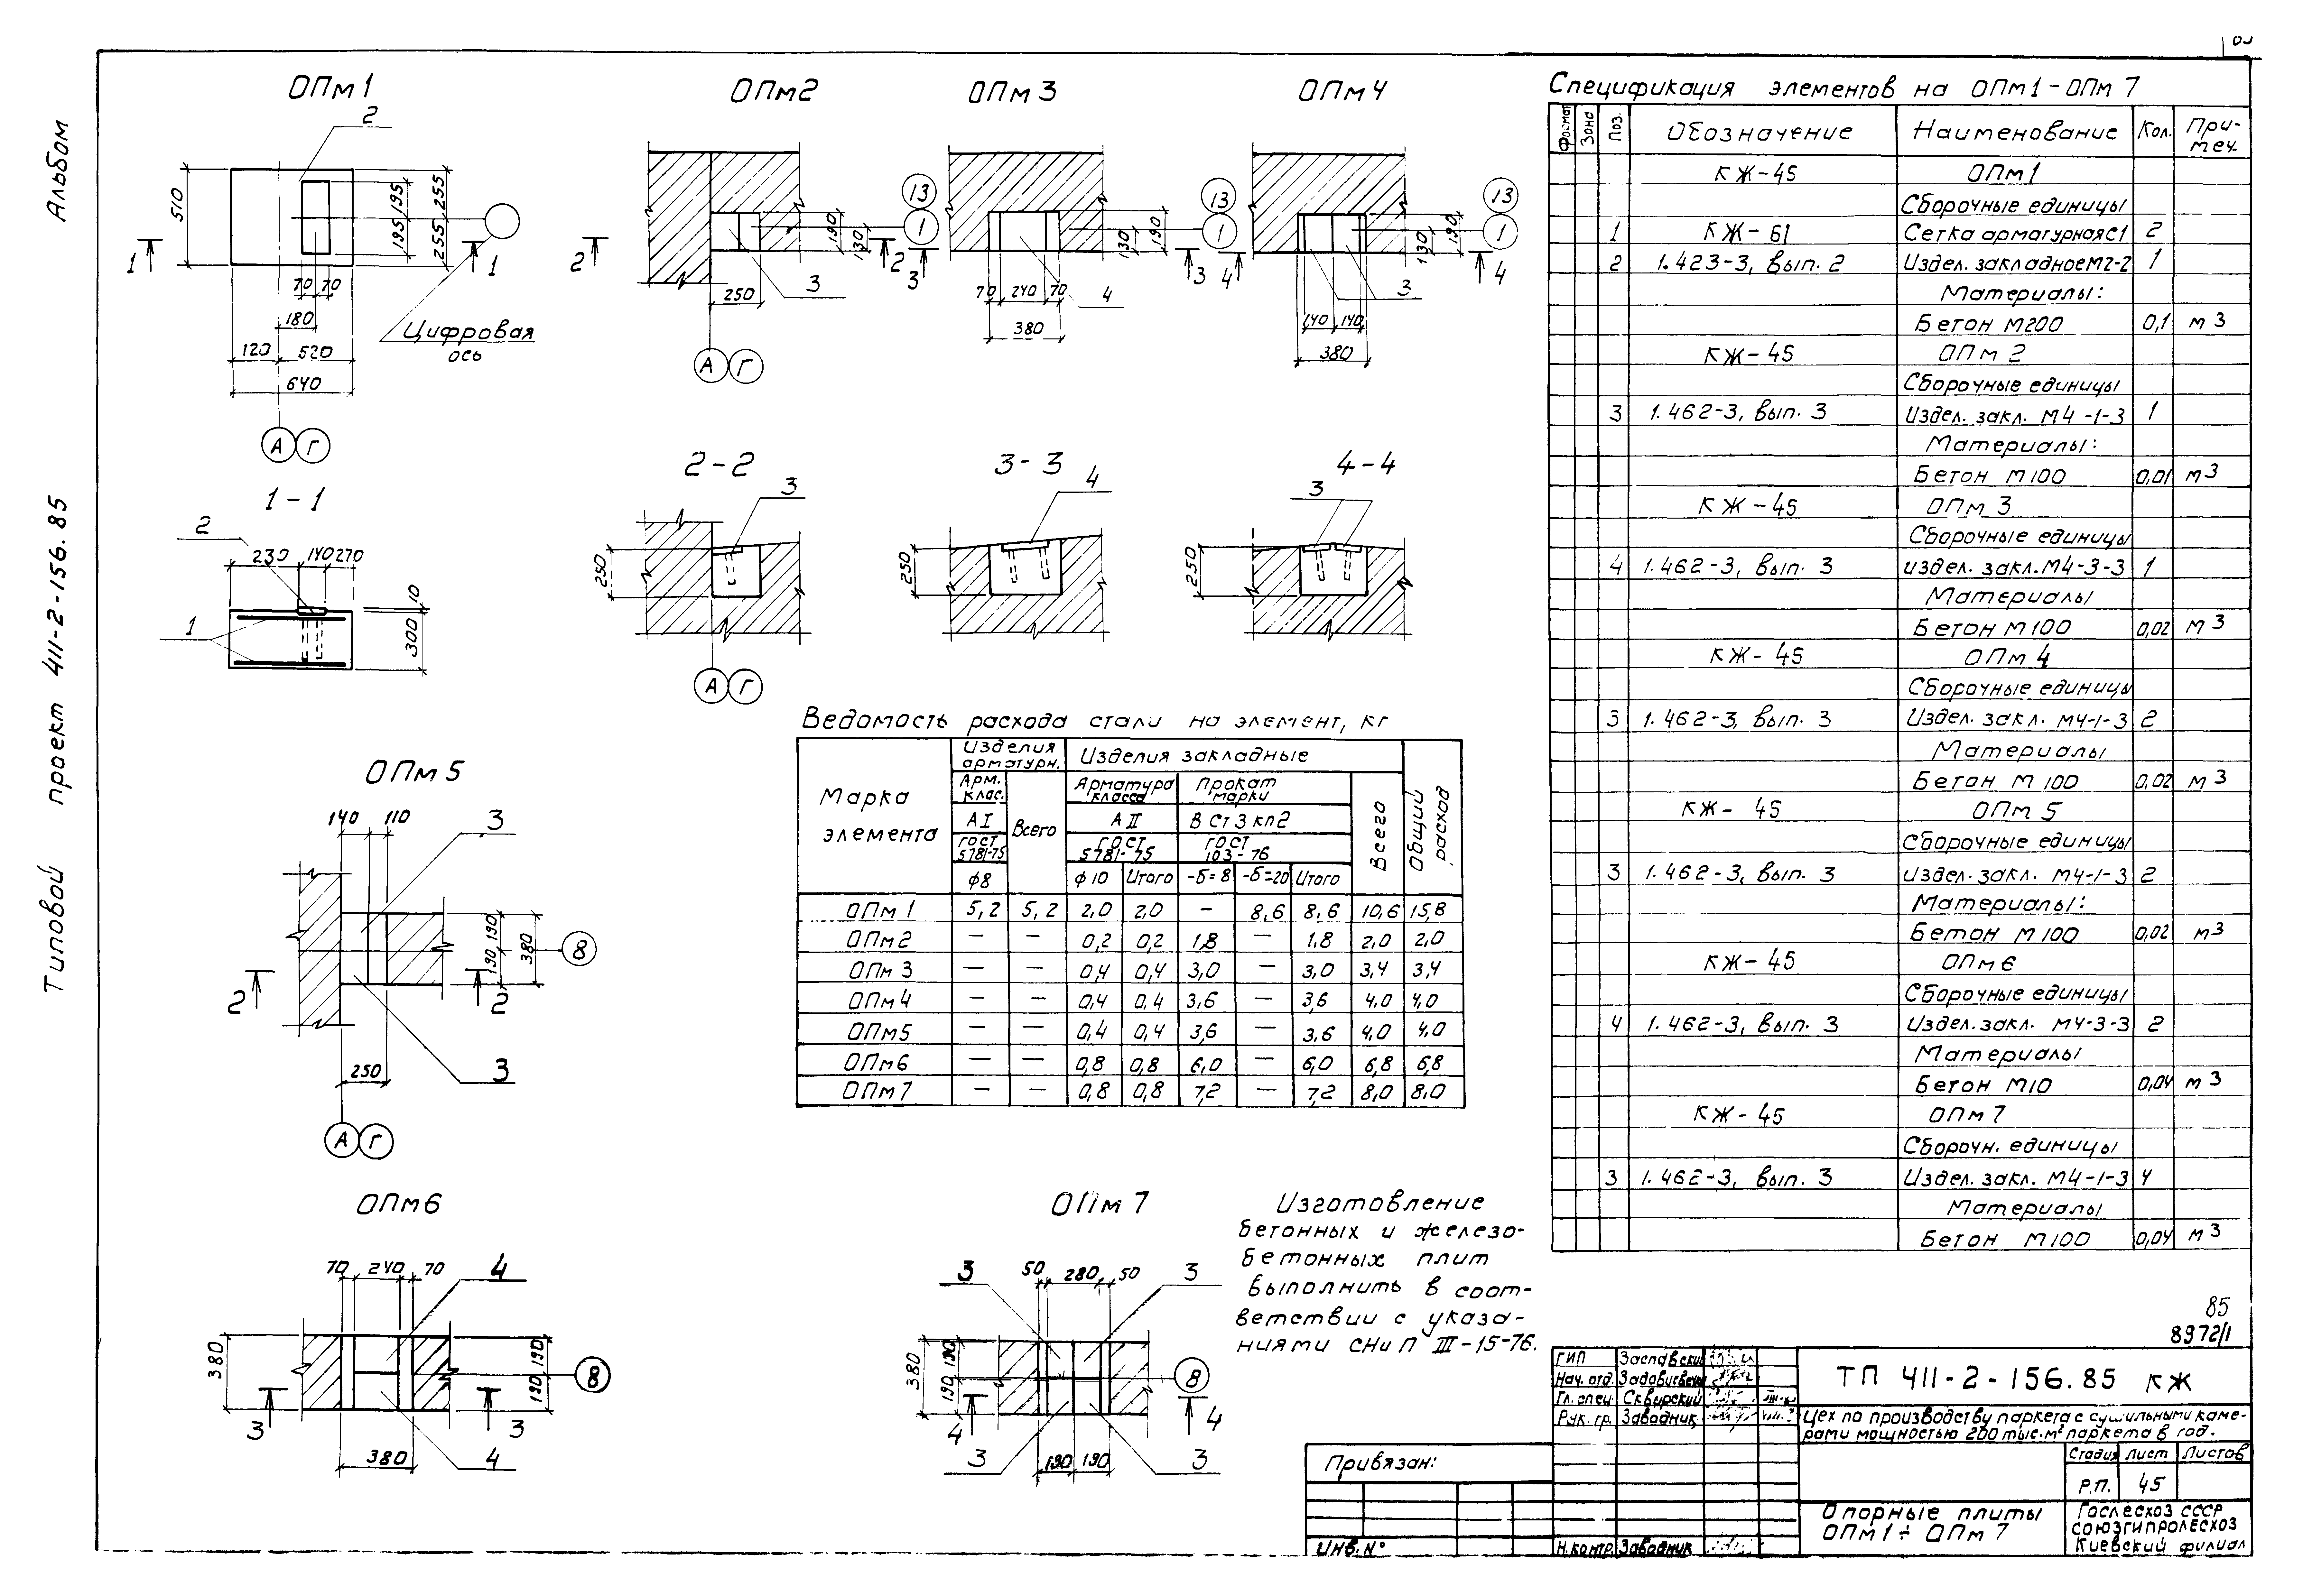 Альбом
Типовой проект 411-2-156.85
ОПм1
2
510
195
195
255
255
1
1
70 70
180
120 520
640
Цифровая
ось
А Г
1-1
2
230 140 270
10
300
1
ОПм2
13
1
190
130
2
2
3
250
А Г
ОПм3
13
1
190
130
3
3
70 240 70
4
380
ОПм4
13
1
190
130
4
4
3
140 140
380
2-2
3
250
А Г
3-3
4
250
4-4
3
250
ОПм5
140 110
3
190
190
380
8
2
2
3
250
А Г
ОПм6
70 240 70
4
380
190
190
8
3
3
4
380
ОПм7
3
50 280 50
3
380
190
190
8
4
4
3
190 190
3
Ведомость расхода стали на элемент, кг
Марка элемента
Изделия арматурн.
Изделия закладные
Общий расход
Арм. клас.
Всего
Арматура класса
Прокат марки
Всего
АI
АII
ВСт3кп2
ГОСТ 5781-75
ГОСТ 5781-75
ГОСТ 103-76
ф8
ф10 Итого -δ=8 -δ=20 Итого
ОПм1 5,2 5,2 2,0 2,0 – 8,6 8,6 10,6 15,8
ОПм2 – – 0,2 0,2 1,8 – 1,8 2,0 2,0
ОПм3 – – 0,4 0,4 3,0 – 3,0 3,4 3,4
ОПм4 – – 0,4 0,4 3,6 – 3,6 4,0 4,0
ОПм5 – – 0,4 0,4 3,6 – 3,6 4,0 4,0
ОПм6 – – 0,8 0,8 6,0 – 6,0 6,8 6,8
ОПм7 – – 0,8 0,8 7,2 – 7,2 8,0 8,0
Изготовление
бетонных и железо-
бетонных плит
выполнить в соот-
ветствии с указа-
ниями СНиП III-15-76.
Спецификация элементов на ОПм1-ОПм7
Формат Зона Поз. Обозначение Наименование Кол. При-меч.
КЖ-45 ОПм1
Сборочные единицы
1 КЖ-61 Сетка арматурная С1 2
2 1.423-3, вып. 2 Издел. закладное М2-2 1
Материалы:
Бетон М200 0,1 м3
КЖ-45 ОПм2
Сборочные единицы
3 1.462-3, вып. 3 Издел. закл. М4-1-3 1
Материалы:
Бетон М100 0,01 м3
КЖ-45 ОПм3
Сборочные единицы
4 1.462-3, вып. 3 издел. закл. М4-3-3 1
Материалы
Бетон М100 0,02 м3
КЖ-45 ОПм4
Сборочные единицы
3 1.462-3, вып. 3 Издел. закл. М4-1-3 2
Материалы
Бетон М100 0,02 м3
КЖ-45 ОПм5
Сборочные единицы
3 1.462-3, вып. 3 Издел. закл. М4-1-3 2
Материалы:
Бетон М100 0,02 м3
КЖ-45 ОПм6
Сборочные единицы
4 1.462-3, вып. 3 Издел. закл. М4-3-3 2
Материалы
Бетон М10 0,04 м3
КЖ-45 ОПм7
Сборочн. единицы
3 1.462-3, вып. 3 Издел. закл. М4-1-3 4
Материалы
Бетон М100 0,04 м3
85
8972/1
ГИП Заславский
Нач. отд.
Гл. спец. Сквирский
Рук. гр. Заводник
Н.контр. Заводник
ТП 411-2-156.85 КЖ
Цех по производству паркета с сушильными каме-
рами мощностью 200 тыс.м² паркета в год.
Стадия Лист Листов
Р.П. 45
Опорные плиты
ОПм1÷ОПм7
Гослесхоз СССР
СОЮЗГИПРОЛЕСХОЗ
Киевский филиал
Привязан:
ИНВ.№